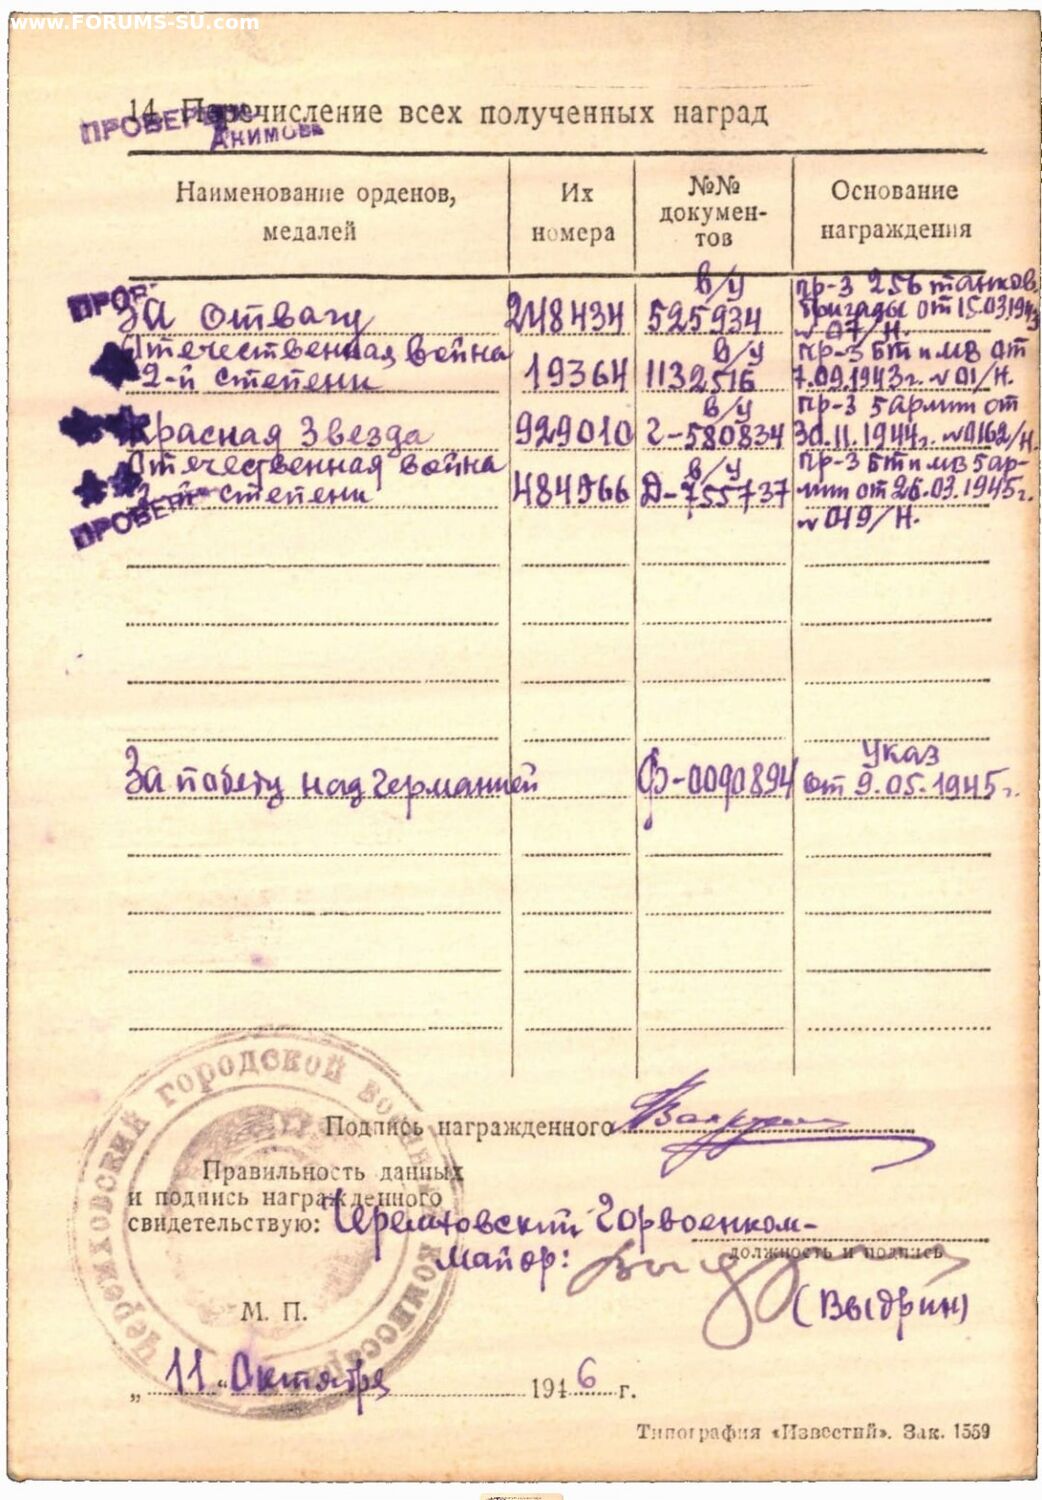 www.FORUMS-SU.com
14. Перечисление всех полученных наград
ПРОВЕРЕНО
Акимова
Наименование орденов, медалей
Их номера
№№ документов
Основание награждения
За отвагу
248434
в/у 525934
пр-з 256 танков. бригады от 15.03.1943 № 07/н.
Отечественная война 2-й степени
19364
в/у 1132516
пр-з БТ и МВ от 7.09.1943г. № 01/н.
Красная Звезда
929010
в/у Г-580834
пр-з 5 армии от 30.11.1944г. № 0162/н.
Отечественная война
степени
484966
в/у Д-755737
пр-з БТ и МВ 5 армии от 26.03.1945г. № 019/н.
За победу над Германией
Ф-0090894
Указ от 9.05.1945г.
Подпись награжденного
Правильность данных
и подпись награжденного
свидетельствую: Черемховский Горвоенком-
майор:
должность и подпись
(Выдрин)
М. П.
Черемховский городской военный комиссариат
„ 11 “ Октября 1946 г.
Типография «Известий». Зак. 1559